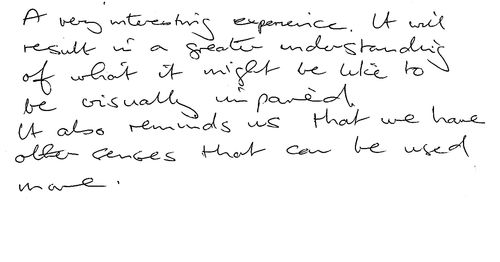 A very interesting experience. It will
result in a greater understanding
of what it might be like to
be visually impaired.
It also reminds us that we have
other senses that can be used
more.